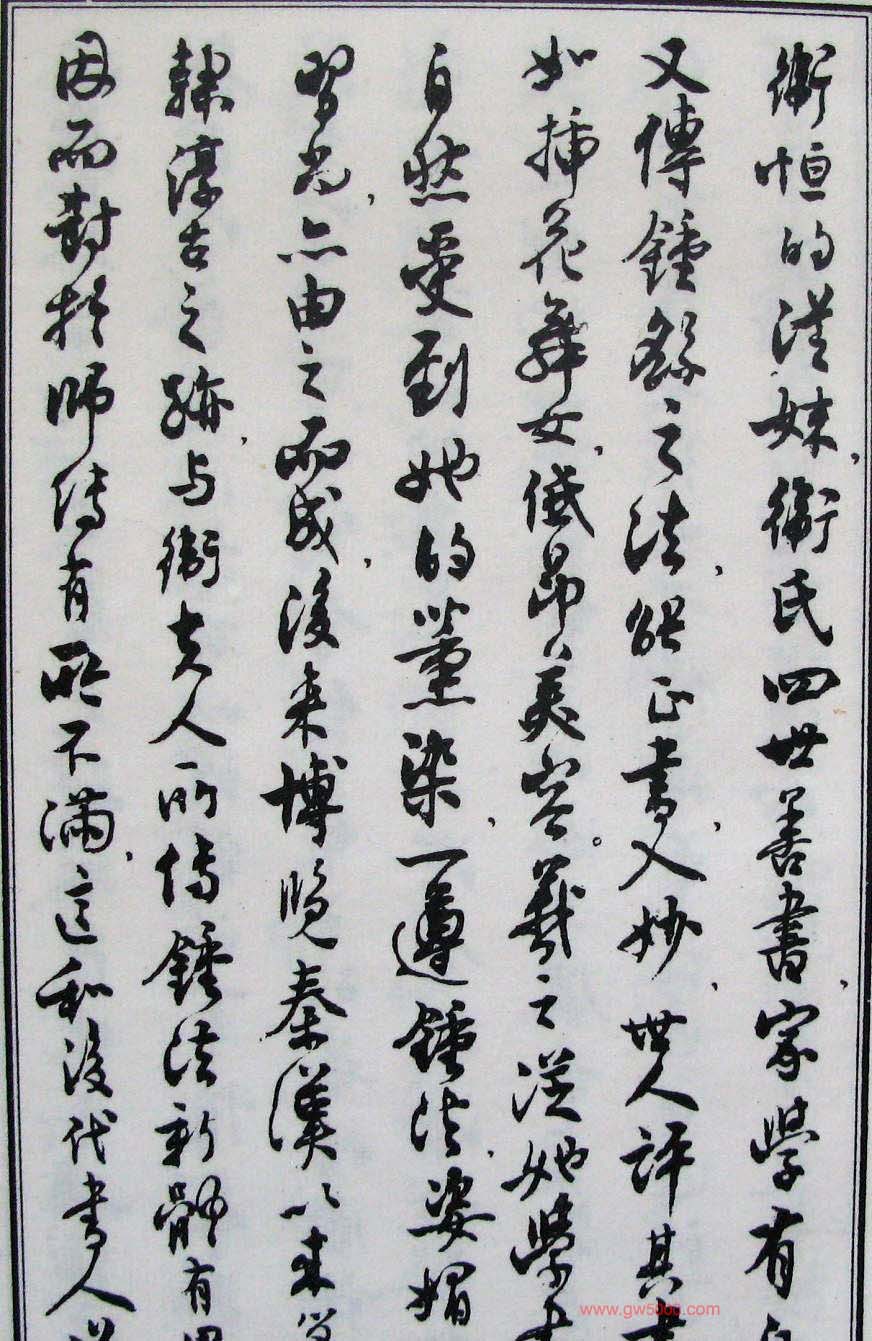 衛恒的從妹,衛氏四世善書,家學有
又傳鍾繇之法,能正書,入妙,世人評其書
如插花舞女,低昂美容。羲之從她學書
自然受到她的薰染,一遵鍾法,姿媚
習尚,亦由之而成,後來博覽秦漢以來篆
隸淳古之跡,与衛夫人所傳鍾法新體有異
因而對於師傳有所不滿,這和後代書人
www.gw5000.com